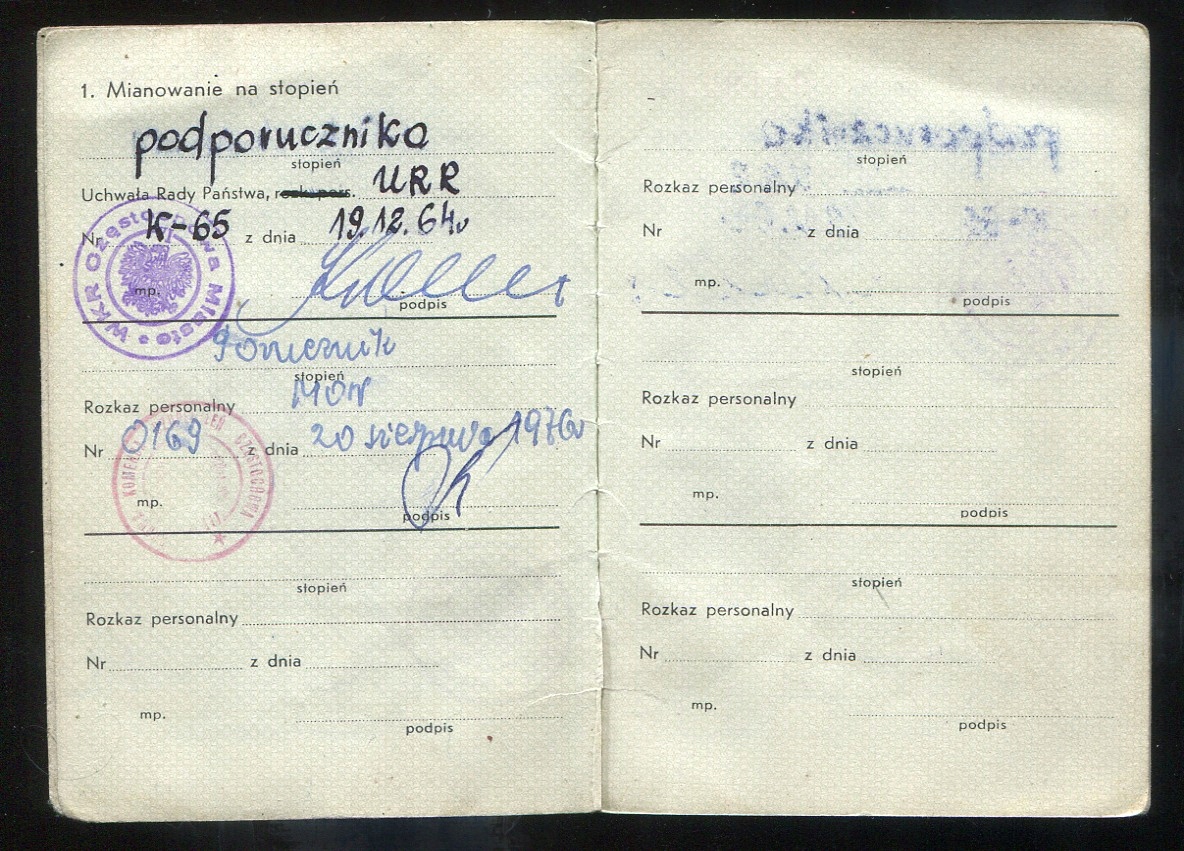 1. Mianowanie na stopień
podporucznika
stopień
Uchwała Rady Państwa, rozk. pers. URR
Nr K-65 z dnia 19.12.64r
WKR Częstochowa Miasto
mp.
podpis
Porucznik
stopień
Rozkaz personalny MON
Nr 0169 z dnia 20 sierpnia 1976r
CZĘSTOCHOWA
mp.
podpis
stopień
Rozkaz personalny
Nr z dnia
mp.
podpis
stopień
Rozkaz personalny
Nr z dnia
mp.
podpis
stopień
Rozkaz personalny
Nr z dnia
mp.
podpis
stopień
Rozkaz personalny
Nr z dnia
mp.
podpis